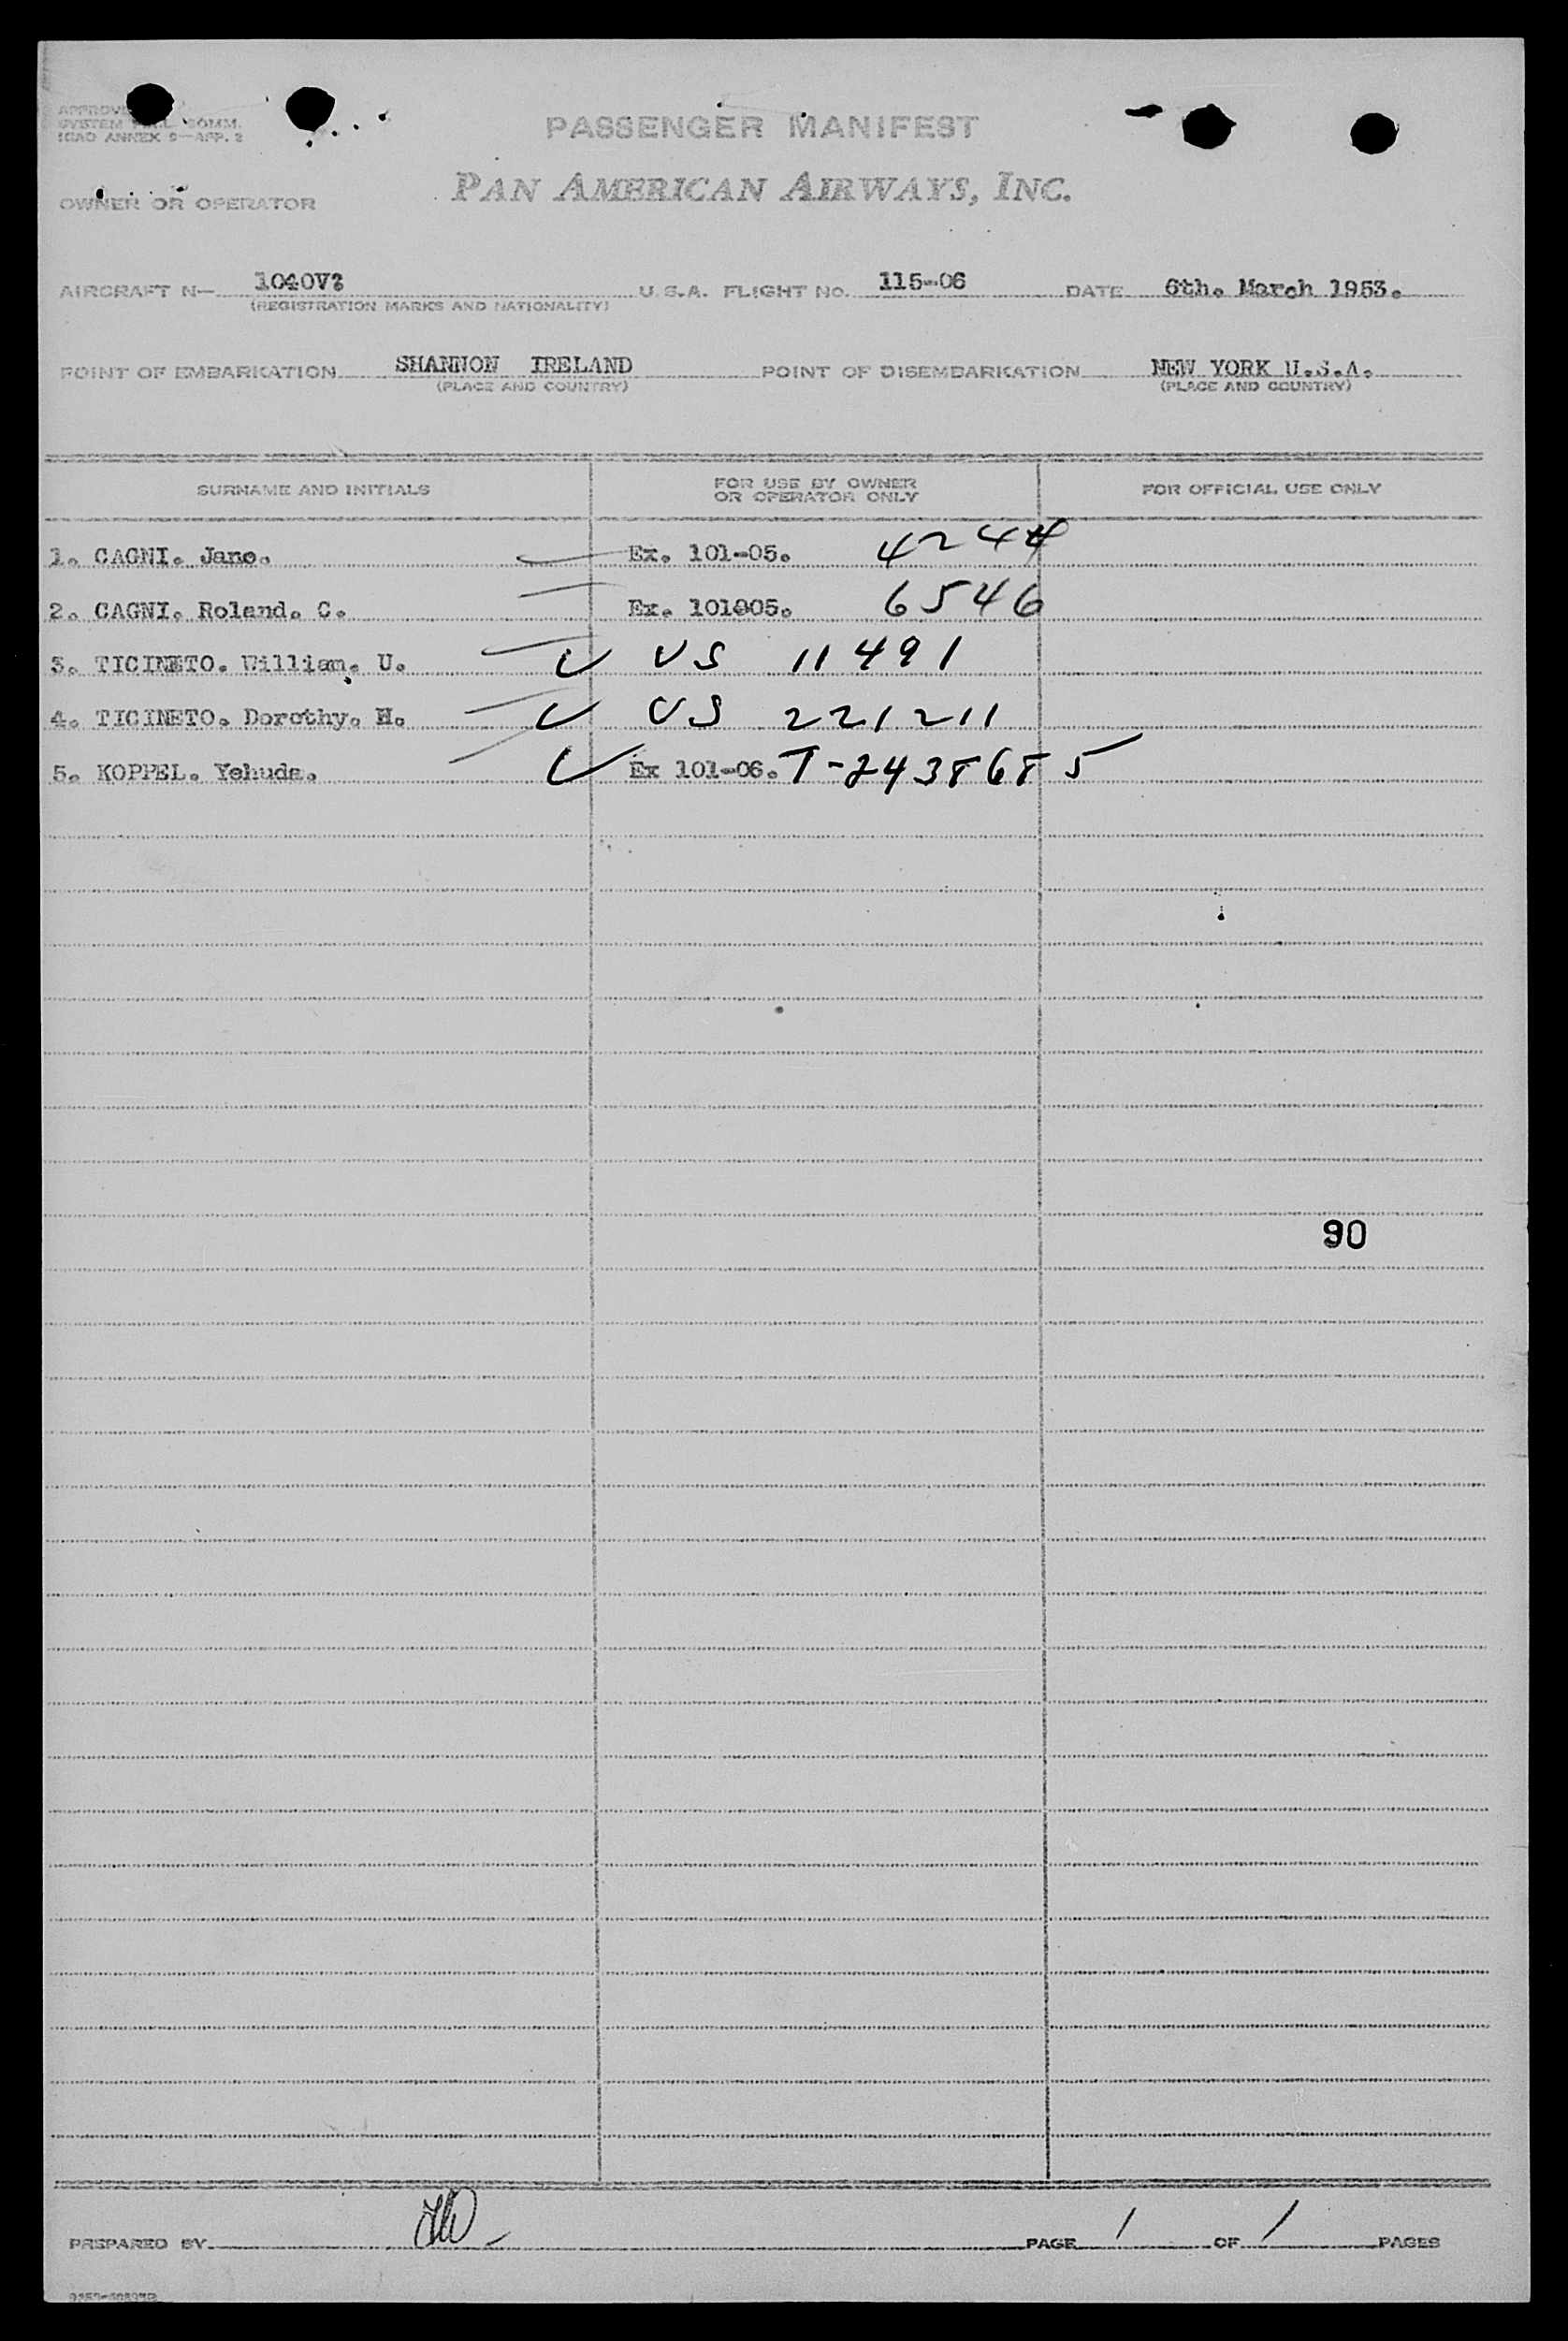 APPROVED
SYSTEM COMM.
ICAO ANNEX 9—APP. 2
PASSENGER MANIFEST
OWNER OR OPERATOR PAN AMERICAN AIRWAYS, INC.
AIRCRAFT N— 1040V U.S.A. FLIGHT NO. 115-06 DATE 6th. March 1953.
(REGISTRATION MARKS AND NATIONALITY)
POINT OF EMBARKATION SHANNON IRELAND POINT OF DISEMBARKATION NEW YORK U.S.A.
(PLACE AND COUNTRY) (PLACE AND COUNTRY)
SURNAME AND INITIALS FOR USE BY OWNER OR OPERATOR ONLY FOR OFFICIAL USE ONLY
1. CAGNI. Jane. Ex. 101-05. 4244
2. CAGNI. Roland. C. Ex. 101005. 6546
3. TICINETO. William. U. US 11491
4. TICINETO. Dorothy. H. US 221211
5. KOPPEL. Yehuda. Ex 101-06. T-2438685
90
PREPARED BY PAGE 1 OF 1 PAGES